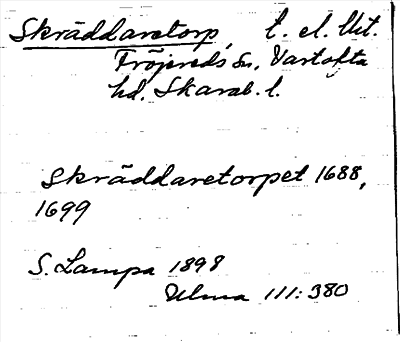 Skräddaretorp, t. el. llit.
Fröjereds sn, Vartofta
hd. Skarab. l.
Skräddaretorpet 1688,
1699
S. Lampa 1898
Ulma 111:380